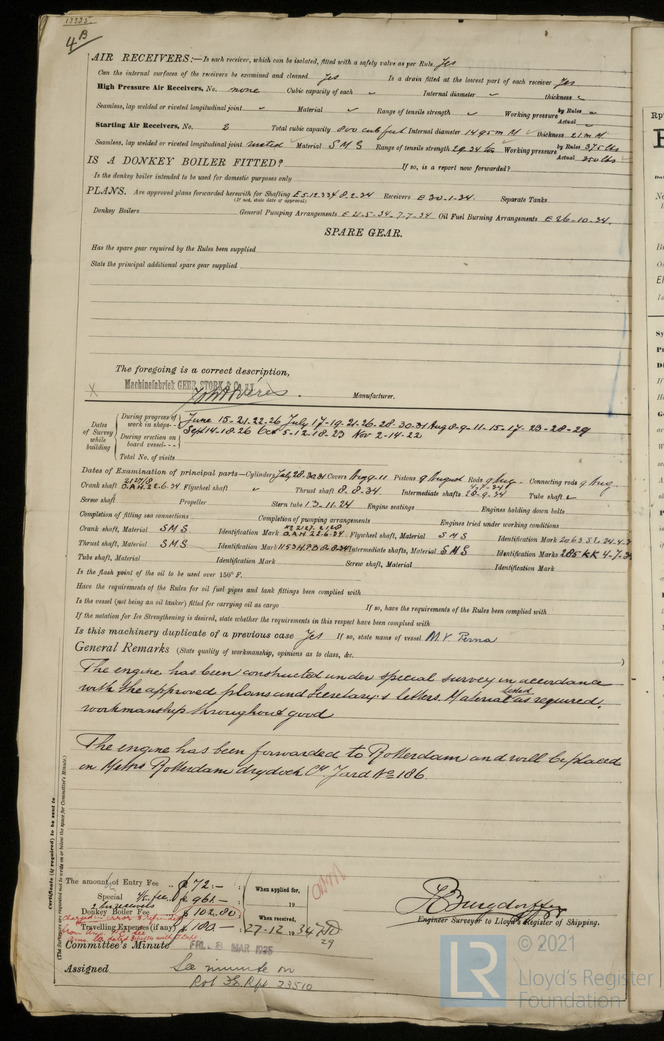 4B
AIR RECEIVERS:—Is each receiver, which can be isolated, fitted with a safety valve as per Rule Yes
Can the internal surfaces of the receivers be examined and cleaned Yes Is a drain fitted at the lowest part of each receiver Yes
High Pressure Air Receivers, No. none Cubic capacity of each Internal diameter thickness
Seamless, lap welded or riveted longitudinal joint Material Range of tensile strength Working pressure by Rules Actual
Starting Air Receivers, No. 2 Total cubic capacity 800 cub feet Internal diameter 1495 m M thickness 21 m M
Seamless, lap welded or riveted longitudinal joint riveted Material S M S Range of tensile strength 29.34 ts Working pressure by Rules 375 lbs Actual 350 lbs
IS A DONKEY BOILER FITTED? If so, is a report now forwarded?
Is the donkey boiler intended to be used for domestic purposes only
PLANS. Are approved plans forwarded herewith for Shafting E 5.12.33 & 8.2.34 Receivers E 30.1.34. Separate Tanks
(If not, state date of approval)
Donkey Boilers General Pumping Arrangements E 21.5.34 - 7.7.34 Oil Fuel Burning Arrangements E 26.10.34.
SPARE GEAR.
Has the spare gear required by the Rules been supplied
State the principal additional spare gear supplied
The foregoing is a correct description,
Machinefabriek GEBR. STORK & Co. N.V.
Manufacturer.
Dates of Survey while building
During progress of work in shops-- June 15-21-22-26 July 17-19-21-26-28-30-31 Aug 8-9-11-15-17-23-28-29
Sept 14-18-26 Oct 5-12-18-23 Nov 2-14-22
During erection on board vessel---
Total No. of visits
Dates of Examination of principal parts—Cylinders July 28.30.31 Covers Aug 9-11 Pistons 9 August Rods 9 Aug. Connecting rods 9 Aug
Crank shaft O.A.H. 22.6.34 Flywheel shaft Thrust shaft 8.8.34. Intermediate shafts 28.9.34 Tube shaft
Screw shaft Propeller Stern tube 13.11.34 Engine seatings Engines holding down bolts
Completion of fitting sea connections Completion of pumping arrangements Engines tried under working conditions
Crank shaft, Material S M S Identification Mark O.A.H. 22.6.34 Flywheel shaft, Material S M S Identification Mark
Thrust shaft, Material S M S Identification Mark Intermediate shafts, Material S M S Identification Marks 285 KK 4-7-34
Tube shaft, Material Identification Mark Screw shaft, Material Identification Mark
Is the flash point of the oil to be used over 150° F.
Have the requirements of the Rules for oil fuel pipes and tank fittings been complied with
Is the vessel (not being an oil tanker) fitted for carrying oil as cargo If so, have the requirements of the Rules been complied with
If the notation for Ice Strengthening is desired, state whether the requirements in this respect have been complied with
Is this machinery duplicate of a previous case Yes If so, state name of vessel M.V. Perna
General Remarks (State quality of workmanship, opinions as to class, &c.
The engine has been constructed under special survey in accordance
with the approved plans and Secretary's letters. Material tested as required,
workmanship throughout good
The engine has been forwarded to Rotterdam and will be placed
in Messrs Rotterdam drydock Co Yard No 186
Certificate (if required) to be sent to
(The Surveyors are requested not to write on or below the space for Committee's Minute.)
The amount of Entry Fee .. £ 72:-
Special 4/5 fee .. £ 961:-
Donkey Boiler Fee £ 102.80
Travelling Expenses (if any) £ 180.-
When applied for,
19
When received,
27-12 1934
Engineer Surveyor to Lloyd's Register of Shipping.
Committee's Minute FRI. 8 MAR 1935
Assigned See minute on
Rot. F.E. Rpt. 23510
© 2021
LR
Lloyd's Register
Foundation